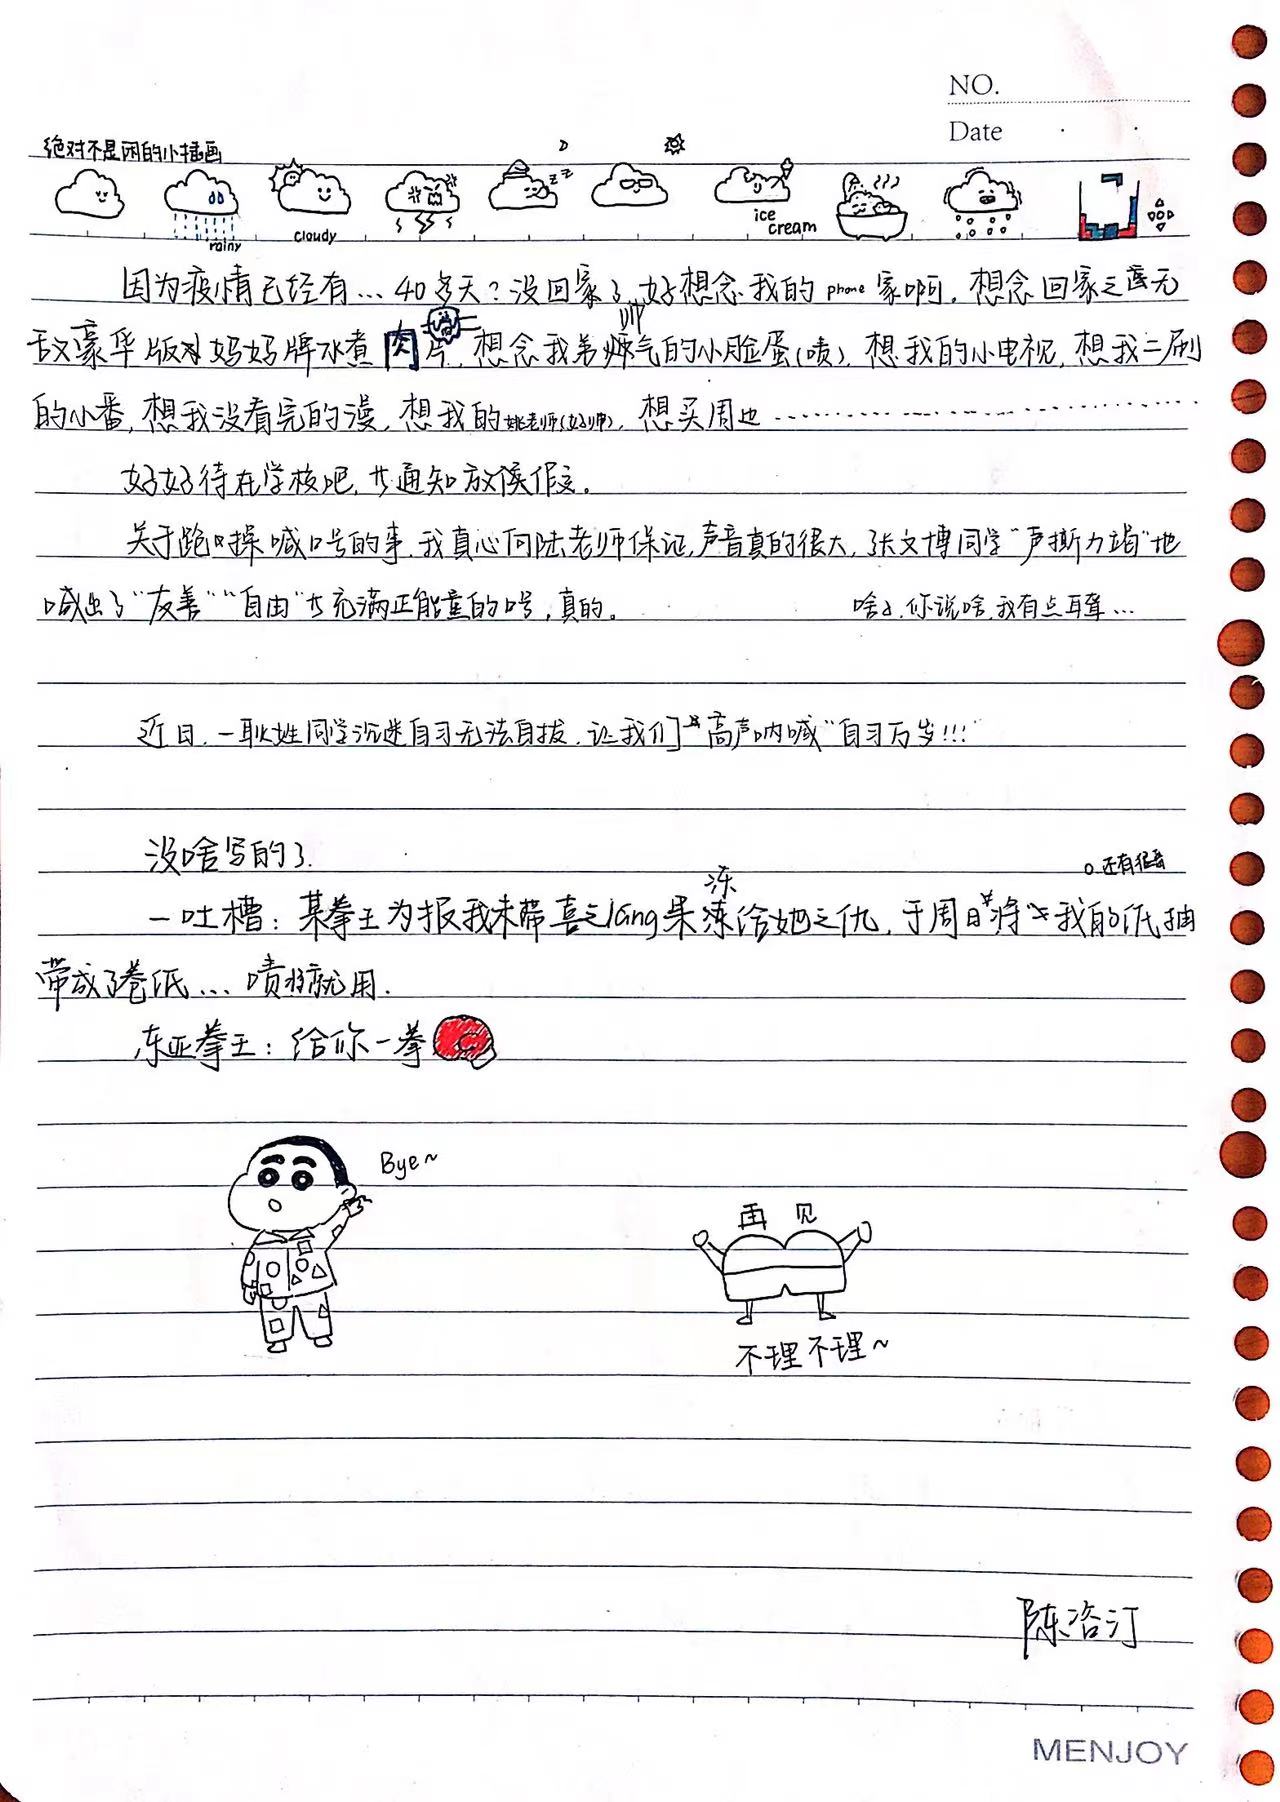 NO.
Date
绝对不是闲的小插画
rainy
cloudy
zzz
ice
cream
因为疫情已经有…40多天?没回家了,好想念我的phone家啊。想念回家之豪无
敌豪华版对妈妈牌水煮肉片,想念我弟帅气的小脸蛋(啧),想我的小电视,想我二刷
的小番,想我没看完的漫,想我的姚老师(好帅),想买周边…………
好好待在学校吧,等通知放假。
关于跑口操喊口号的事,我真心向陆老师保证,声音真的很大,张文博同学"声撕力竭"地
喊出了"友善""自由"等充满正能量的口号,真的。 啥?你说啥,我有点耳聋…
近日,一耿姓同学沉迷自习无法自拔,让我们高声呐喊"自习万岁!!!"
没啥写的了.
还有很多
一吐槽:某拳王为报我未带喜之lang果冻给她之仇,于周日将我的纸抽
带成了卷纸…啧将就用.
东亚拳王:给你一拳
Bye~
再见
不理不理~
陈洺汀
MENJOY